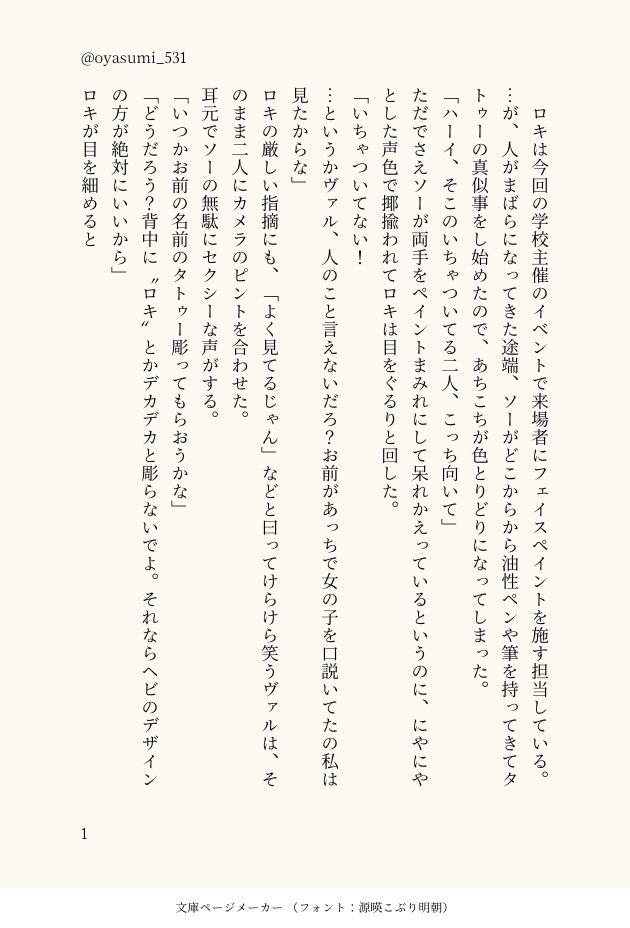 @oyasumi_531
　ロキは今回の学校主催のイベントで来場者にフェイスペイントを施す担当している。
…が、人がまばらになってきた途端、ソーがどこからから油性ペンや筆を持ってきてタ
トゥーの真似事をし始めたので、あちこちが色とりどりになってしまった。
「ハーイ、そこのいちゃついてる二人、こっち向いて」
ただでさえソーが両手をペイントまみれにして呆れかえっているというのに、にやにや
とした声色で揶揄われてロキは目をぐるりと回した。
「いちゃついてない！
…というかヴァル、人のこと言えないだろ？お前があっちで女の子を口説いてたの私は
見たからな」
ロキの厳しい指摘にも、「よく見てるじゃん」などと曰ってけらけら笑うヴァルは、そ
のまま二人にカメラのピントを合わせた。
耳元でソーの無駄にセクシーな声がする。
「いつかお前の名前のタトゥー彫ってもらおうかな」
「どうだろう？背中に〝ロキ〟とかデカデカと彫らないでよ。それならヘビのデザイン
の方が絶対にいいから」
ロキが目を細めると
1
文庫ページメーカー （フォント：源暎こぶり明朝）